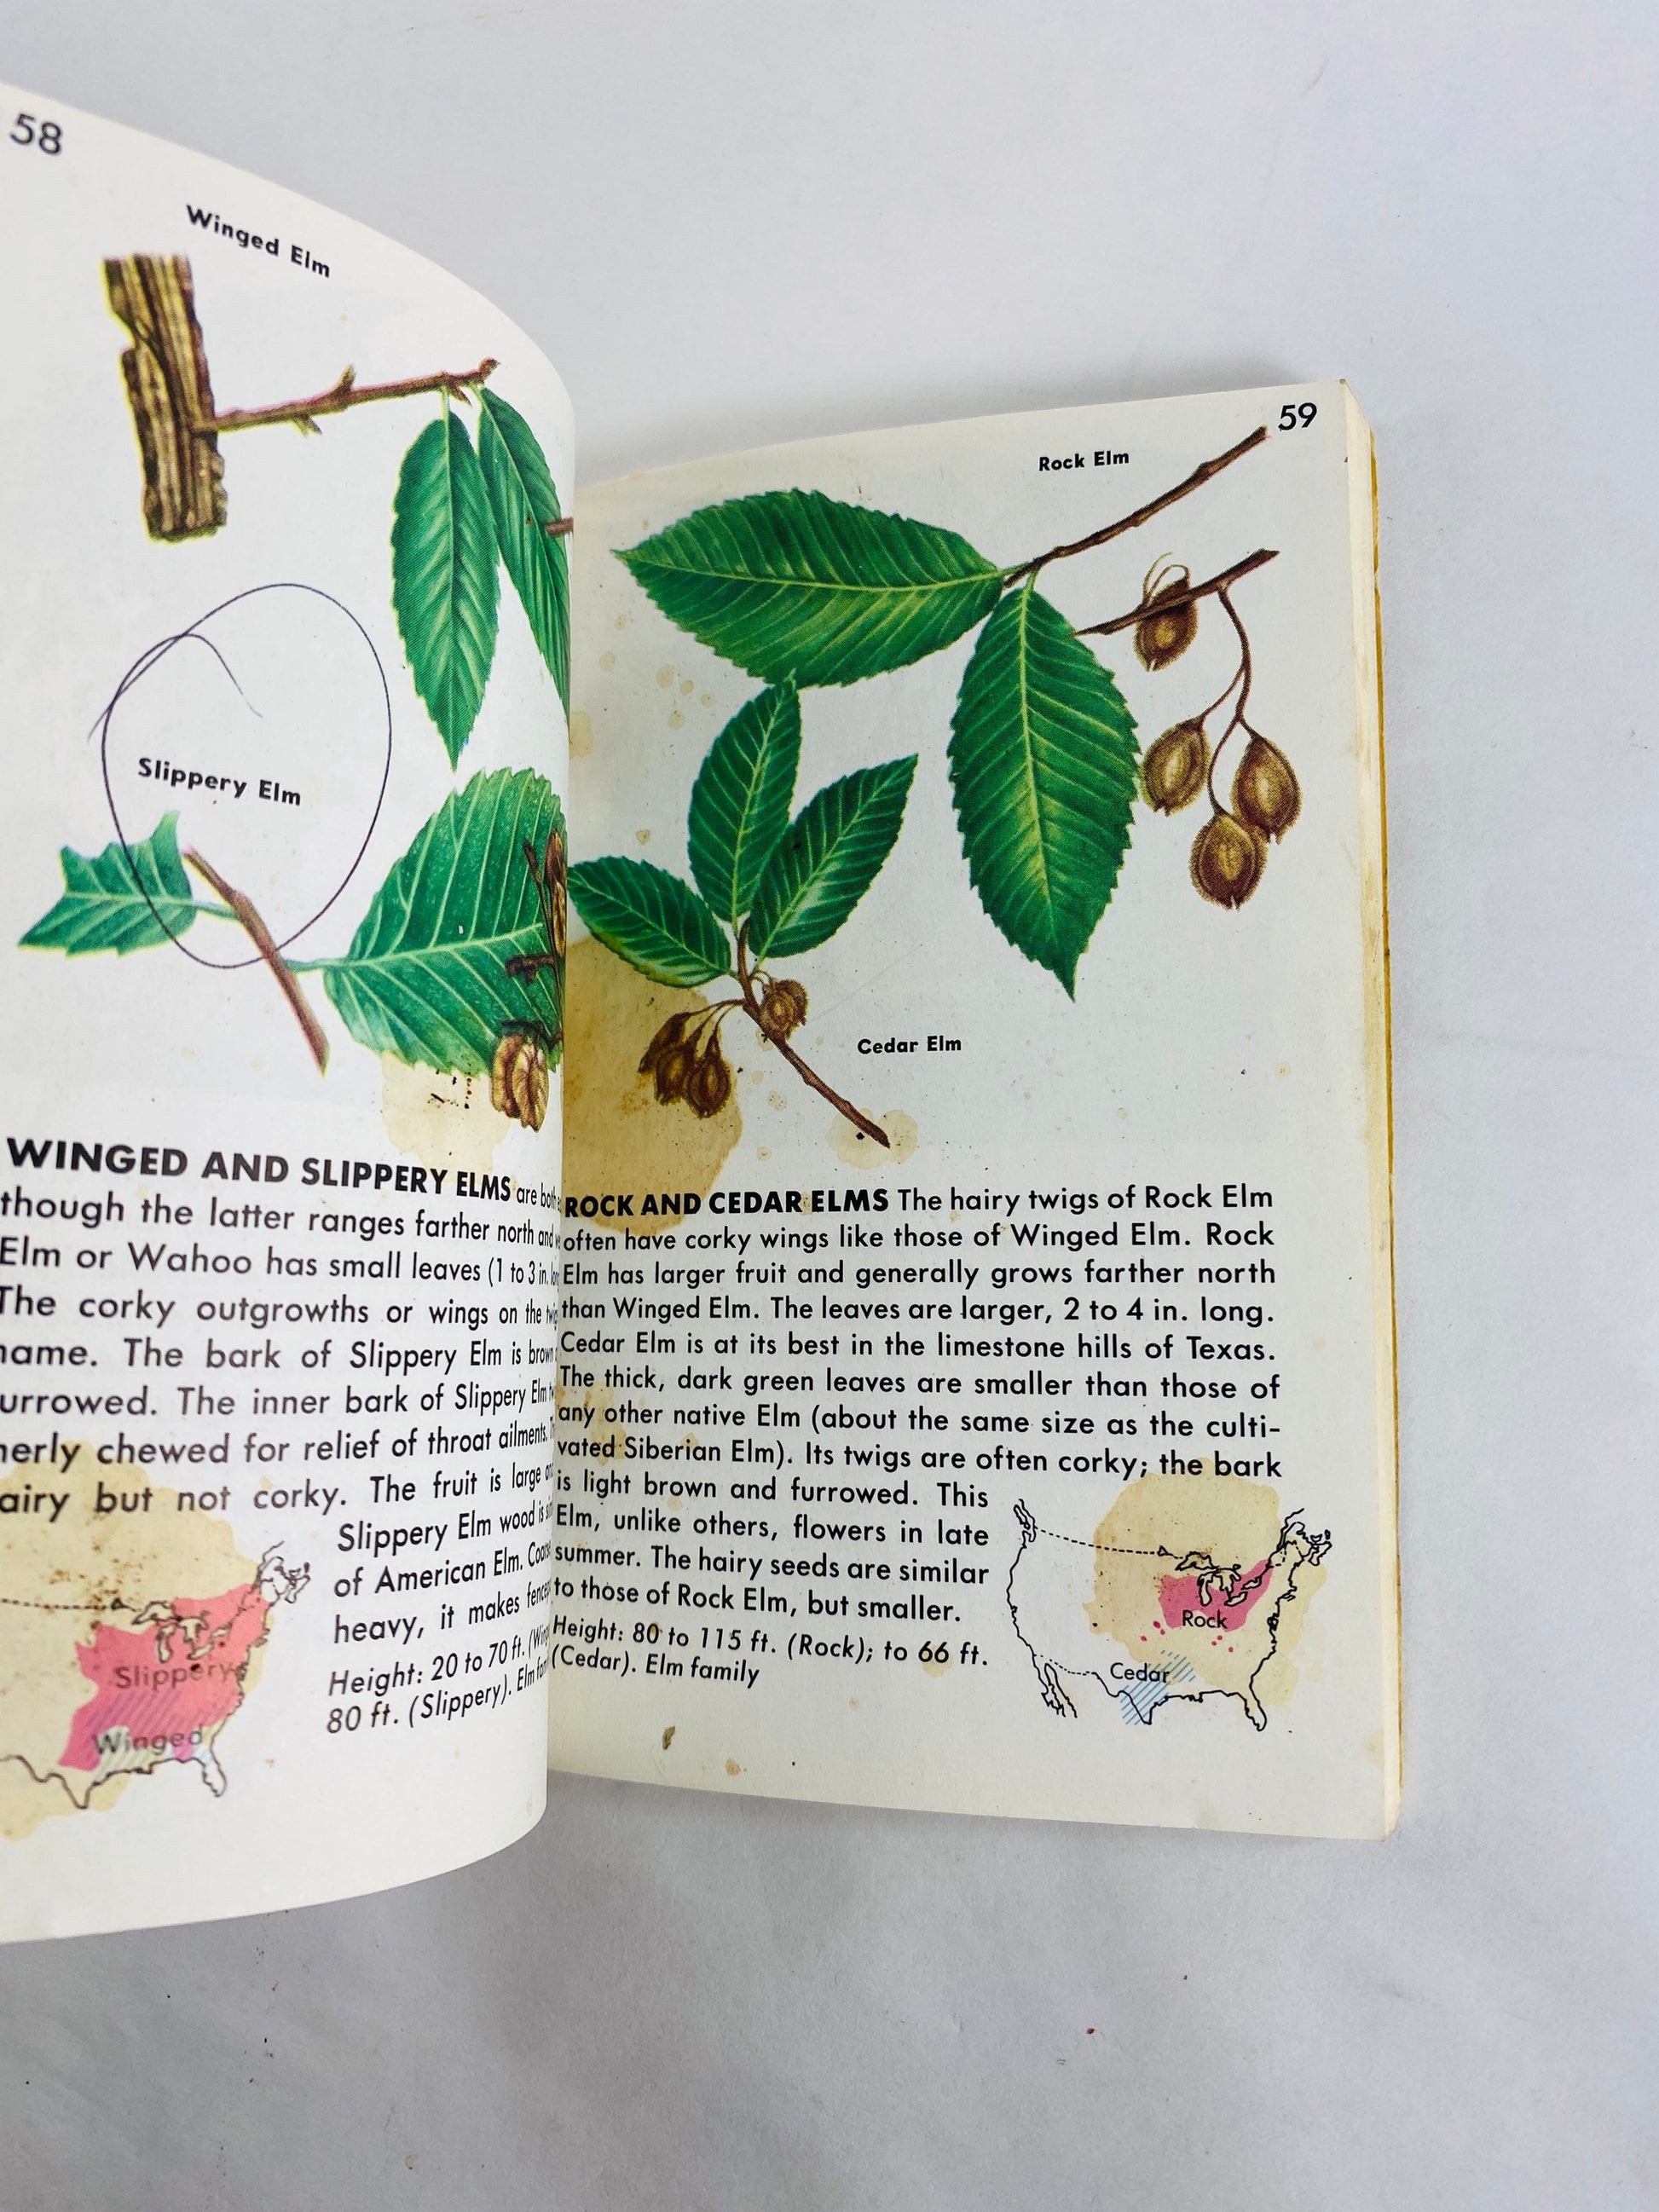 58
Winged Elm
Slippery Elm
WINGED AND SLIPPERY ELMS are both
though the latter ranges farther north and
Elm or Wahoo has small leaves (1 to 3 in.
The corky outgrowths or wings on the
name. The bark of Slippery Elm is brown
urrowed. The inner bark of Slippery Elm
nerly chewed for relief of throat ailments.
airy but not corky. The fruit is large
Slippery Elm wood is
of American Elm.
heavy, it makes
Height: 20 to 70 ft.
80 ft. (Slippery). Elm
Slippery
Winged
59
Rock Elm
Cedar Elm
ROCK AND CEDAR ELMS The hairy twigs of Rock Elm
often have corky wings like those of Winged Elm. Rock
Elm has larger fruit and generally grows farther north
than Winged Elm. The leaves are larger, 2 to 4 in. long.
Cedar Elm is at its best in the limestone hills of Texas.
The thick, dark green leaves are smaller than those of
any other native Elm (about the same size as the culti-
vated Siberian Elm). Its twigs are often corky; the bark
is light brown and furrowed. This
Elm, unlike others, flowers in late
summer. The hairy seeds are similar
to those of Rock Elm, but smaller.
Height: 80 to 115 ft. (Rock); to 66 ft.
(Cedar). Elm family
Rock
Cedar